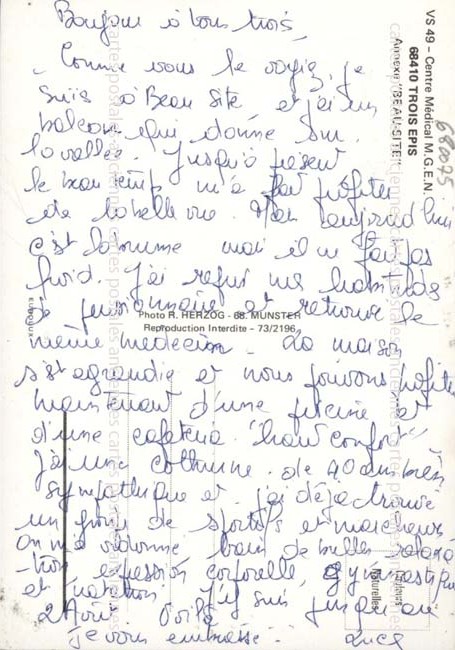 Bonjour à tous trois,
Comme vous le voyez, je
suis à Beau Site et j'ai un
balcon qui donne sur
la vallée. Jusqu'à présent
le beau temps m'a fait profiter
de la belle vue. Mais aujourd'hui
c'est la brume mais il ne fait pas
froid. J'ai repris mes habitudes
et retrouvé le
même médecin. La maison
s'est agrandie et nous pouvons profiter
maintenant d'une piscine et
d'une cafeteria "haut confort"
J'ai une cothurne de 40 ans bien
sympathique et j'ai déjà trouvé
un groupe de sportifs et marcheurs
On m'a ordonné bain de bulles relaxa
-tion expression corporelle, gymnastique
et natation. J'y suis jusqu'au
2 Août Voilà
je vous embrasse.
Luce
VS 49 - Centre Médical M.G.E.N.
68410 TROIS EPIS
Annexe "BEAU-SITE"
680075
Photo R. HERZOG - 68. MUNSTER
Reproduction Interdite - 73/2196
Couleurs
Naturelles